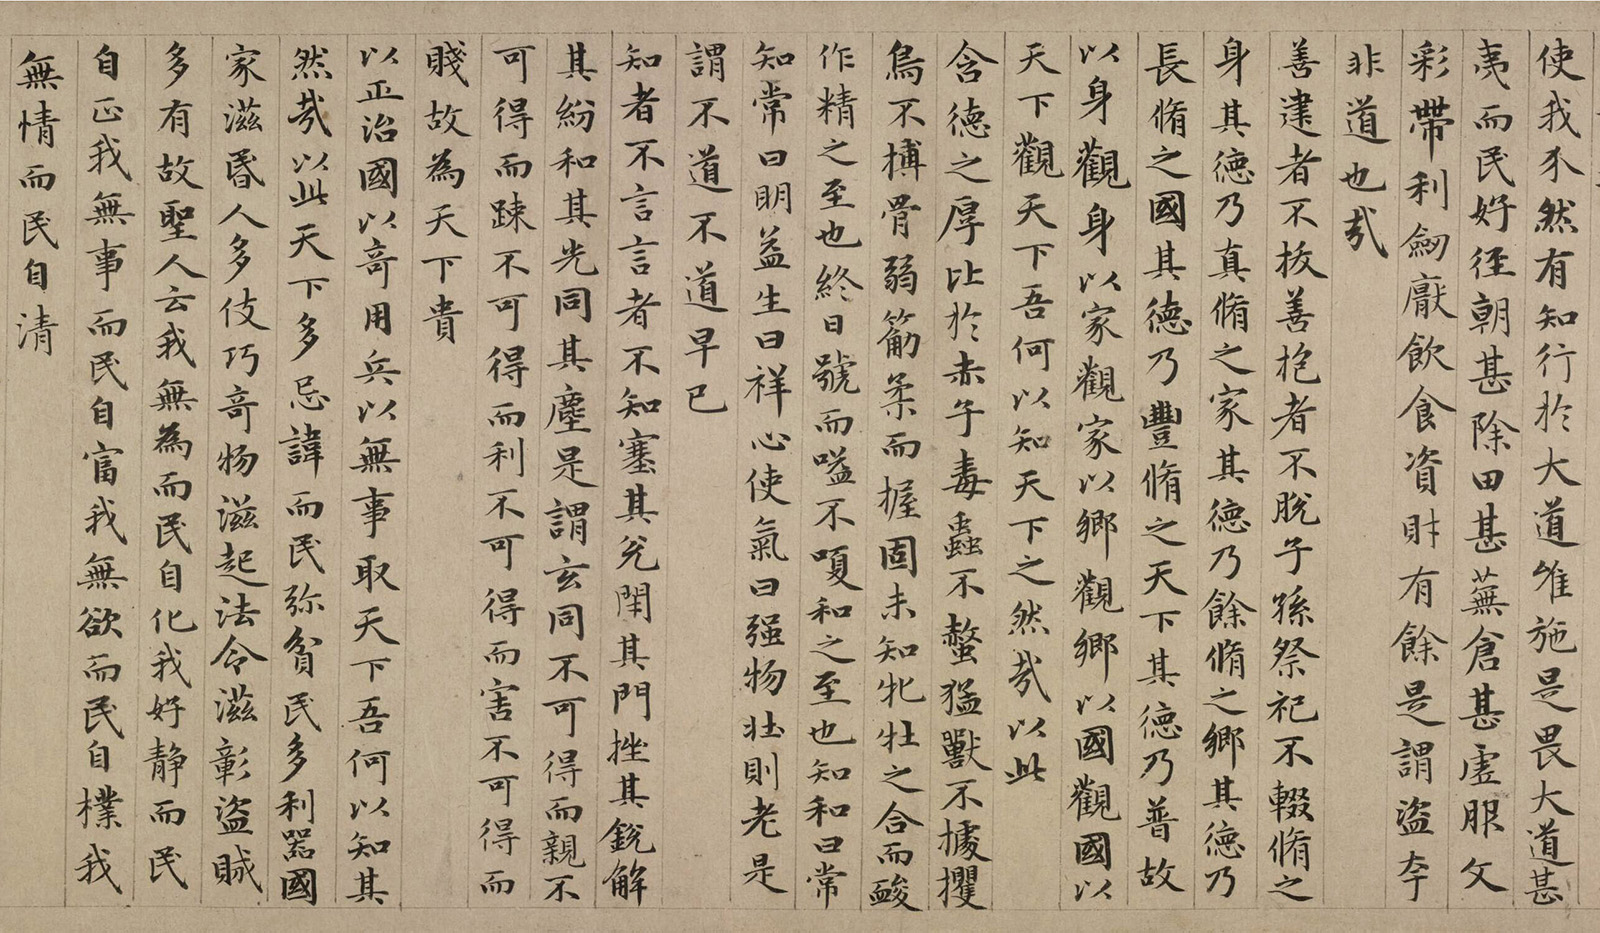 使我不然有知行於大道唯施是畏大道甚
夷而民好径朝甚除田甚蕪倉甚虗服文
彩帶利劒厭飲食資財有餘是謂盗夸
非道也㢤
善建者不拔善抱者不脫子孫祭祀不輟脩之
身其德乃真脩之家其德乃餘脩之鄉其德乃
長脩之國其德乃豐脩之天下其德乃普故
以身觀身以家觀家以鄉觀鄉以國觀國以
天下觀天下吾何以知天下之然㢤以此
含德之厚比於赤子毒蟲不螫猛獸不據攫
鳥不搏骨弱筋柔而握固未知牝牡之合而酸
作精之至也終日號而嗌不嗄和之至也知和曰常
知常曰明益生曰祥心使氣曰强物壯則老是
謂不道不道早已
知者不言言者不知塞其兌閉其門挫其銳解
其紛和其光同其塵是謂玄同不可得而親不
可得而踈不可得而利不可得而害不可得而
賤故為天下貴
以正治國以竒用兵以無事取天下吾何以知其
然㢤以此天下多忌諱而民弥貧民多利器國
家滋昏人多伎巧竒物滋起法令滋彰盗賊
多有故聖人云我無為而民自化我好静而民
自正我無事而民自富我無欲而民自樸我
無情而民自清